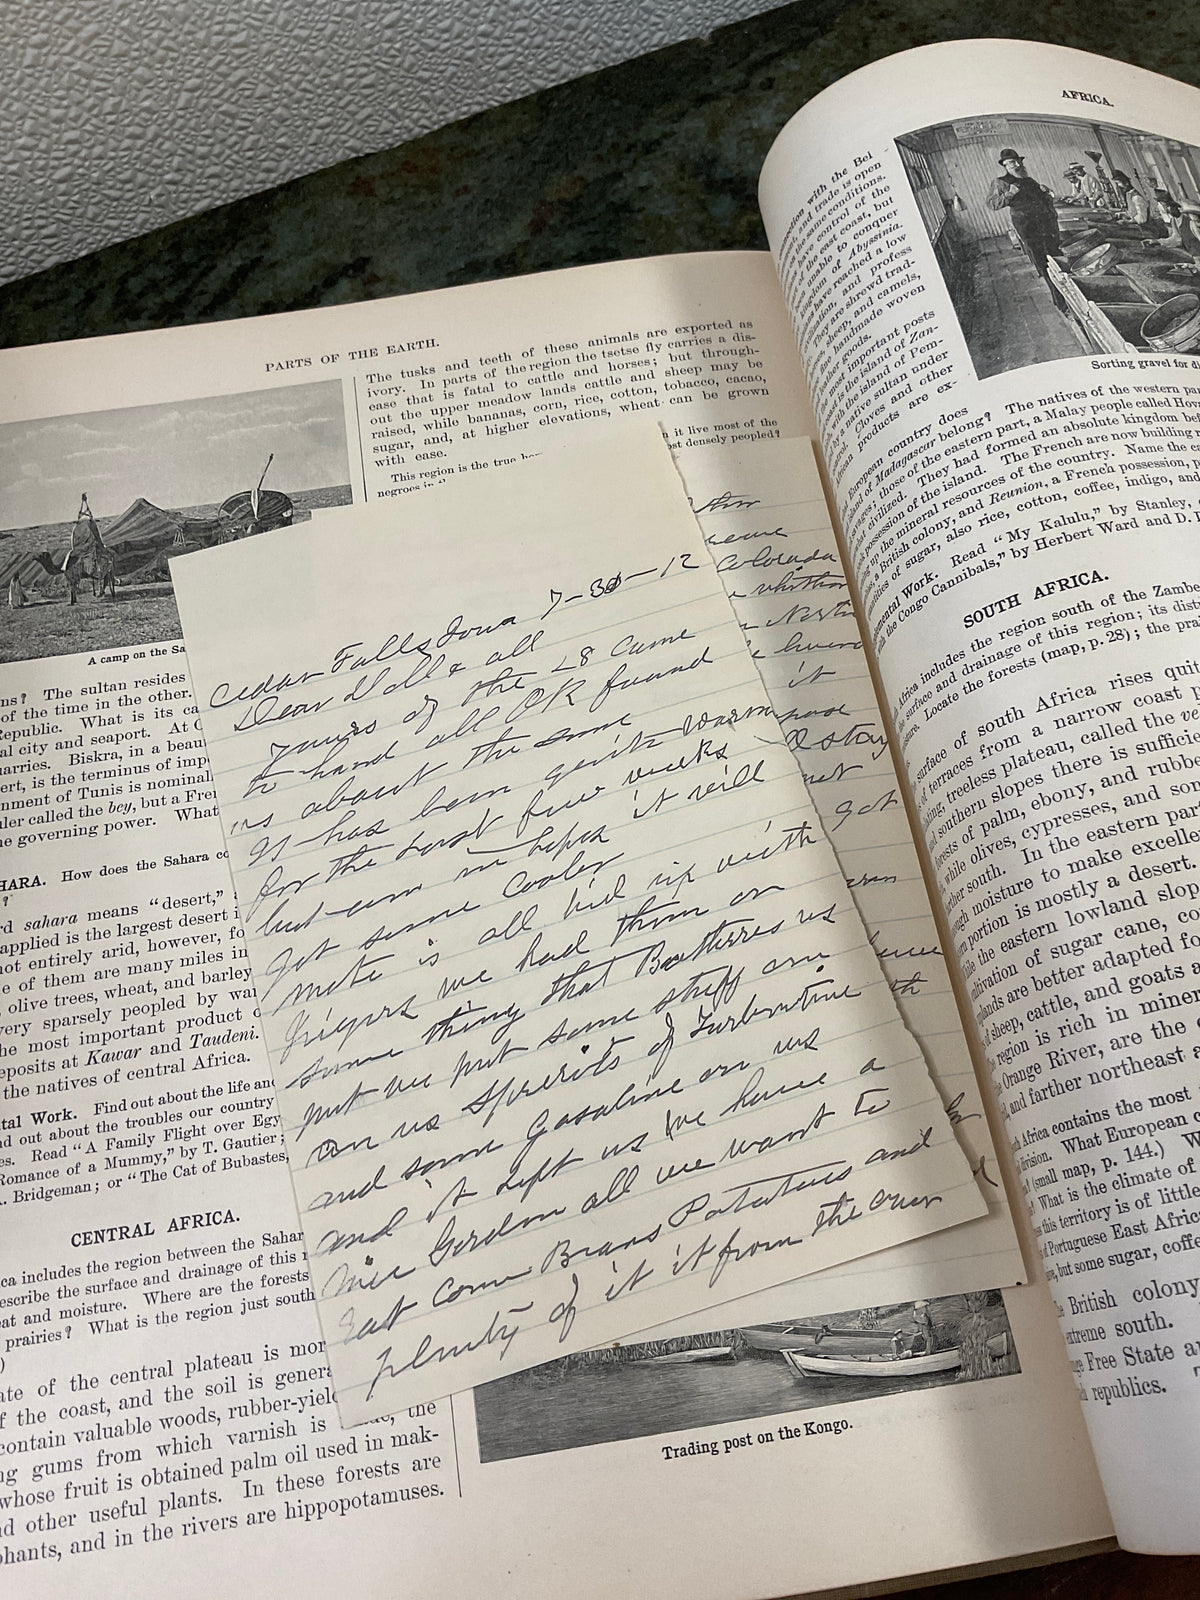 PARTS OF THE EARTH.
The tusks and teeth of these animals are exported as
ivory. In parts of the region the tsetse fly carries a dis-
ease that is fatal to cattle and horses; but through-
out the upper meadow lands cattle and sheep may be
raised, while bananas, corn, rice, cotton, tobacco, cacao,
sugar, and, at higher elevations, wheat can be grown
with ease.
This region is the true
negroes
it live most of the
densely peopled?
A camp on the Sa
The sultan resides
of the time in the other.
Republic. What is its ca
al city and seaport. At
Biskra, in a beau
ert, is the terminus of imp
nment of Tunis is nominal
uler called the bey, but a Fre
he governing power. What
HARA. How does the Sahara co
?
rd sahara means "desert,"
applied is the largest desert i
not entirely arid, however, fo
e of them are many miles in
, olive trees, wheat, and barley
very sparsely peopled by wa
he most important product
eposits at Kawar and Taudeni.
the natives of central Africa.
tal Work. Find out about the life and
nd out about the troubles our country
es. Read "A Family Flight over Egy
Romance of a Mummy," by T. Gautier;
. Bridgeman; or "The Cat of Bubastes,
CENTRAL AFRICA.
ca includes the region between the Sahar
escribe the surface and drainage of this r
eat and moisture. Where are the forests
prairies? What is the region just south
)
ate of the central plateau is mor
f the coast, and the soil is genera
contain valuable woods, rubber-yiel
ng gums from which varnish is the
whose fruit is obtained palm oil used in mak-
nd other useful plants. In these forests are
phants, and in the rivers are hippopotamuses.
Cedar Falls Iowa 7-30-12
Dear Dell & all
Yours of the 28 came
to hand all OK found
us about the same
It has been quite warm
for the last few weeks
but am in hopes it will
get some cooler
mate is all hid up with
Jigers we had them or
some thing that Bothers us
put we put some stuff on
on us Spireits of Turbentine
and some Gasoline on us
and it left us We have a
Nice Gardon all we want to
Eat Corn Beans Potatoes and
plenty of it it from the
Colorado
it
a story
not
got
Trading post on the Kongo.
AFRICA.
with the Bel
and trade is open
the same conditions.
have control of the
the east coast, but
unable to conquer
kingdom of Abyssinia.
have reached a low
and profess
They are shrewd trad-
sheep, and camels,
fine handmade woven
leather goods.
most important posts
is the island of Zan-
with the island of Pem-
by a native sultan under
Cloves and other
African products are ex-
Sorting gravel for di
European country does
of Madagascar belong? The natives of the western pa
those of the eastern part, a Malay people called Hov
civilized. They had formed an absolute kingdom bef
possession of the island. The French are now building r
up the mineral resources of the country. Name the ca
a British colony, and Reunion, a French possession, p
of sugar, also rice, cotton, coffee, indigo, and
Work. Read "My Kalulu," by Stanley,
the Congo Cannibals," by Herbert Ward and D.
SOUTH AFRICA.
Africa includes the region south of the Zambe
surface and drainage of this region; its dist
Locate the forests (map, p. 28); the prai
surface of south Africa rises quit
of terraces from a narrow coast p
treeless plateau, called the ve
southern slopes there is sufficie
of palm, ebony, and rubbe
while olives, cypresses, and son
further south. In the eastern par
moisture to make excellen
portion is mostly a desert.
the eastern lowland slop
cultivation of sugar cane, co
are better adapted fo
sheep, cattle, and goats a
region is rich in miner
Orange River, are the
and farther northeast a
Africa contains the most
division. What European c
(small map, p. 144.) W
What is the climate of
this territory is of little
of Portuguese East Africa
but some sugar, coffe
British colony
extreme south.
Free State a
republics.